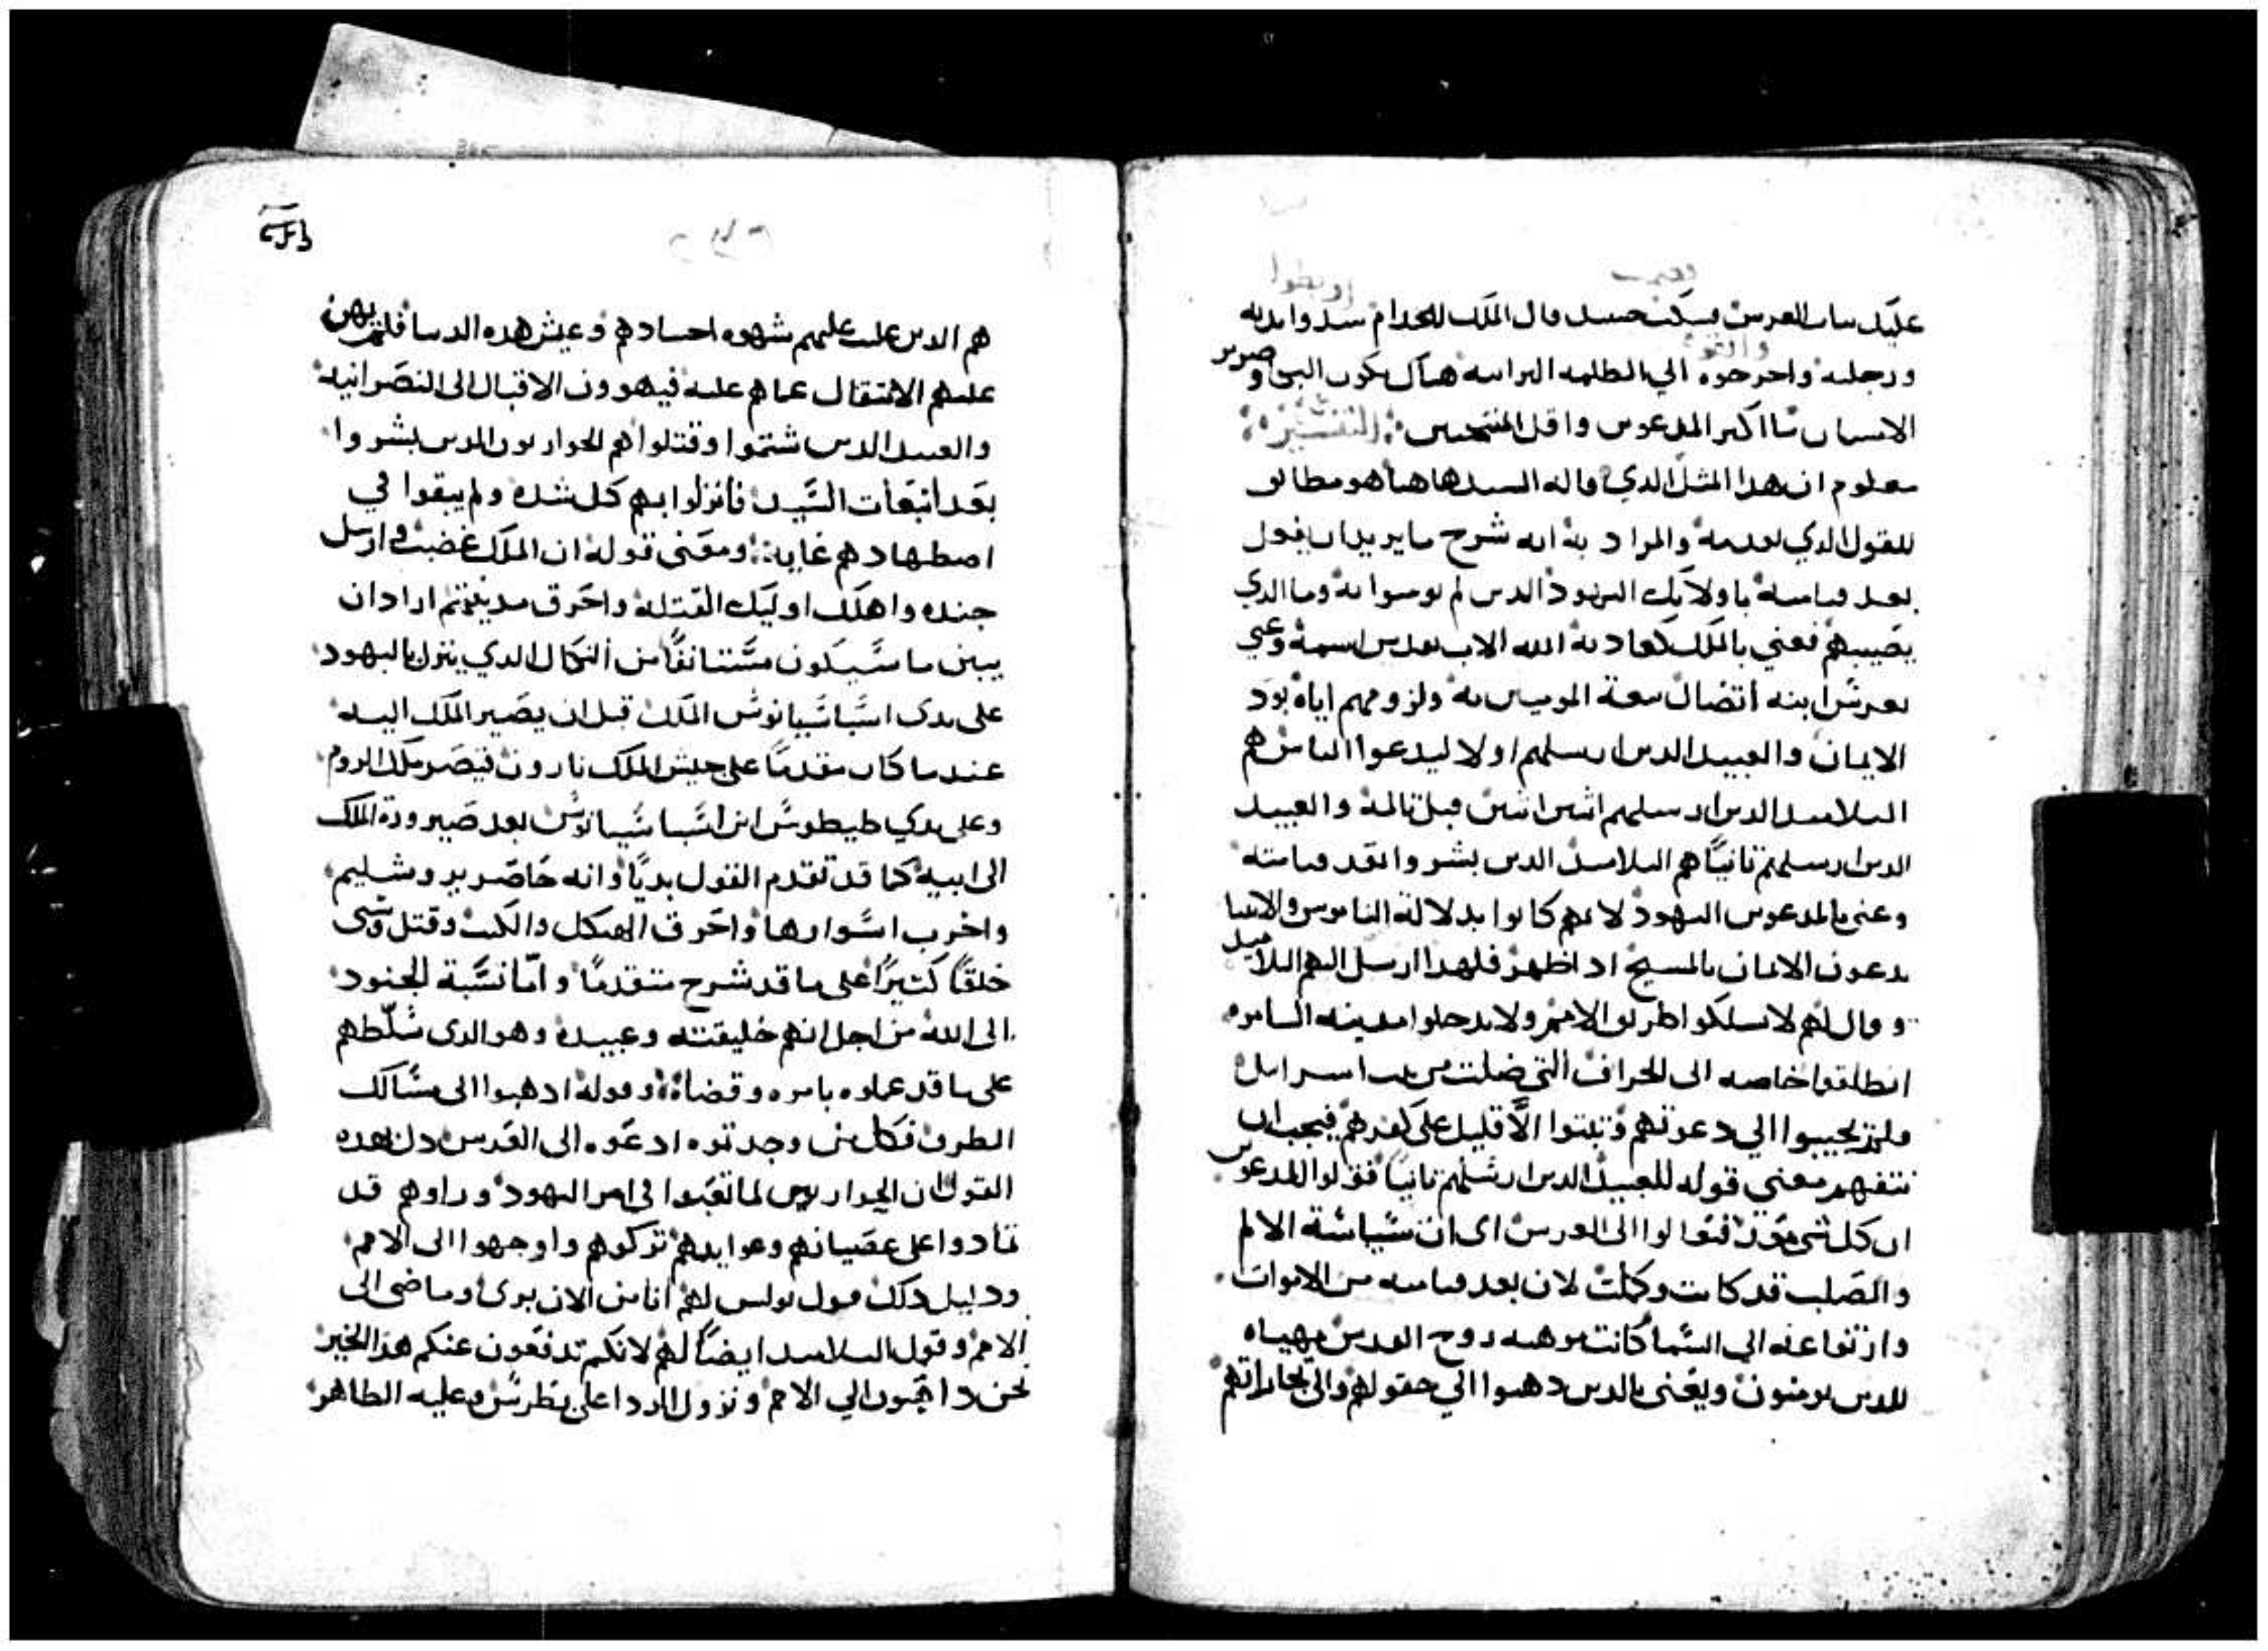 اوربطوا
فصمت
عليك ساب العرس فسكت حينيد قال الملك للخدام سدوا يديه
والقوه
ورجليه واخرجوه الي الظلمه البرانيه هناك يكون البكي وصرير
الاسنان ما اكثر المدعوين واقل المنتخبين التفسير
معلوم ان هدا المثل الدي قاله السيد هاهنا هو مطابق
للقول الدي تقدمه والمراد به انه شرح ما يريد ان يفعل
بعد قيامته باولايك اليهود الدين لم يومنوا به وما الدي
يصيبهم فعني بالملك كعادته الله الاب تقدس اسمه وعني
بعرس ابنه اتصال بيعة المومنين به ولزومهم اياه بود
الايمان والعبيد الدين ارسلهم اولا ليدعوا الناس هم
التلاميد الدين ارسلهم اتنين اتنين قبل تالمه والعبيد
الدين ارسلهم تانيًا هم التلاميد الدين بشروا بعد قيامته
وعني بالمدعوين اليهود لانهم كانوا بدلالة الناموس والانبيا
يدعون الايمان بالمسيح ادا ظهر فلهدا ارسل اليهم التلاميد
وقال لهم لا تسلكوا طريق الامم ولا تدخلوا مدينه السامره
انطلقوا خاصه الى الخراف التي ضلت من بيت اسرايل
فلم يجيبوا الي دعوتهم وتبتوا الا قليل على كفرهم فيجب ان
نتفهم معني قوله للعبيد الدين ارسلهم تانيًا قولوا للمدعوين
ان كل شي معد فتعالوا الى العرس اى ان سياسة الالم
والصلب قد كانت وكملت لان بعد قيامته من الاموات
وارتفاعه الي السما كانت موهبه روح القدس مهياه
للدين يومنون ويعني بالدين دهبوا الي حقولهم والي تجاراتهم
هم الدين غلبت عليهم شهوه اجسادهم وعيش هده الدنيا فلم يهن
عليهم الانتقال عما هم عليه فيهوون الاقبال الى النصرانيه
والعبيد الدين شتموا وقتلوا هم الحواريون الدين بشروا
بعد انبعات السيد فانزلوا بهم كل شده ولم يبقوا في
اضطهادهم غايه ومعنى قوله ان الملك غضب وارسل
جنده واهلك اوليك القتله واحرق مدينتهم اراد ان
يبين ما سيكون مستانفًا من النكال الدي ينزل باليهود
على يدي اسباسيانوس الملك قبل ان يصير الملك اليه
عندما كان مقدمًا على جيش الملك نارون قيصر ملك الروم
وعلى يدي طيطوس ابن اسباسيانوس بعد صيرورة الملك
الى ابيه كما قد تقدم القول بديًا وانه حاصر يروشليم
واخرب اسوارها واحرق الهيكل والكتب وقتل وسبى
خلقًا كثيرًا على ما قد شرح متقدمًا وامّا نسبة الجنود
الى الله من اجل انهم خليقته وعبيده وهو الدي سلّطهم
على ما قد عملوه بامره وقضاه وقوله ادهبوا الى مسالك
الطرق فكل من وجدتوه ادعوه الى العرس دل بهده
القول ان الحواريين لما تعبوا في امر اليهود وراوهم قد
تمادوا على عصيانهم وعوايدهم تركوهم واوجهوا الى الامم
ودليل دلك قول بولس لهم انا من الان بري وماضى الى
الامم وقول التلاميد ايضًا لهم لانكم تدفعون عنكم هدا الخير
نحن داهبون الي الامم ونزول الردا على بطرس وعليه الطاهر